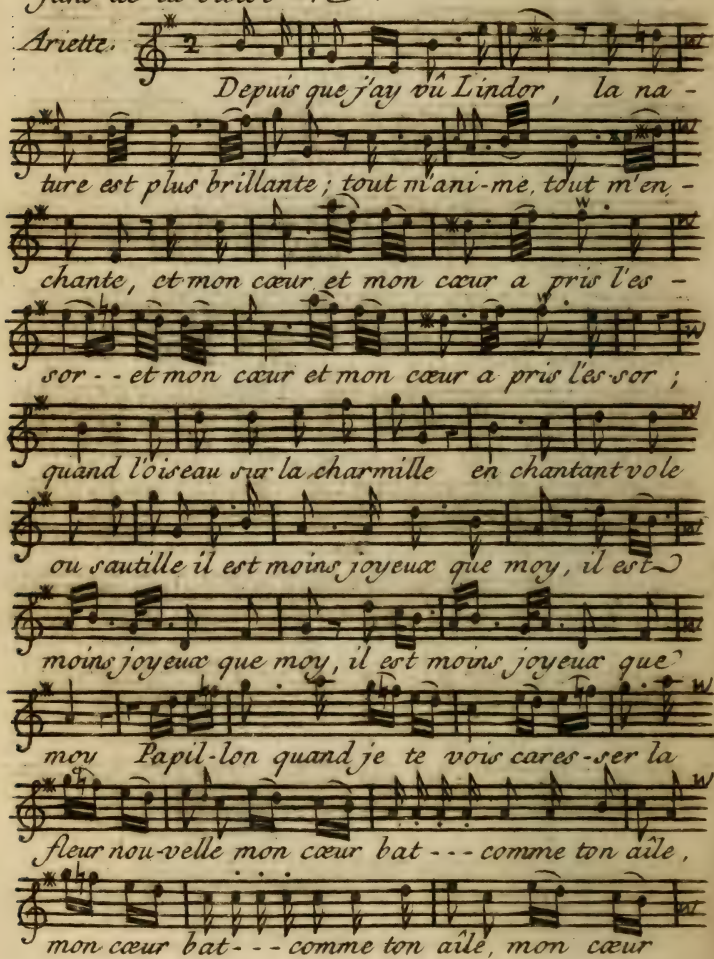 Ariette. 2
Depuis que j'ay vû Lindor, la na -
ture est plus brillante; tout m'ani-me, tout m'en -
chante, et mon cœur et mon cœur a pris l'es -
sor - - et mon cœur et mon cœur a pris l'es-sor;
quand l'oiseau sur la charmille en chantant vole
ou sautille il est moins joyeux que moy, il est
moins joyeux que moy, il est moins joyeux que
moy Papil-lon quand je te vois cares-ser la
fleur nou-velle mon cœur bat - - - comme ton aîle,
mon cœur bat - - - comme ton aîle, mon cœur